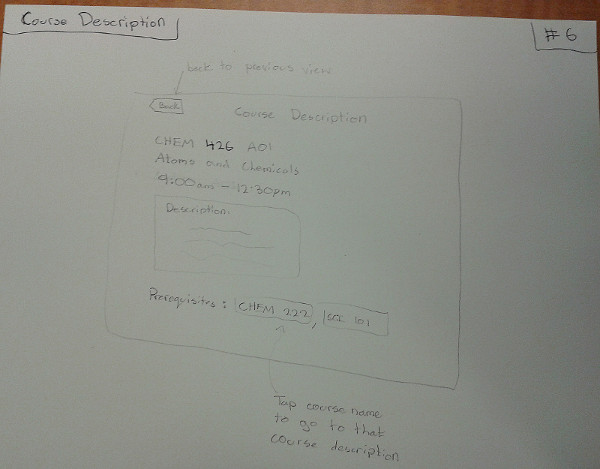 Course Description
# 6
back to previous view
Back
Course Description
CHEM 426 A01
Atoms and Chemicals
9:00am - 12:30pm
Description:
Prerequisites: CHEM 222, SCI 101
Tap course name
to go to that
course description